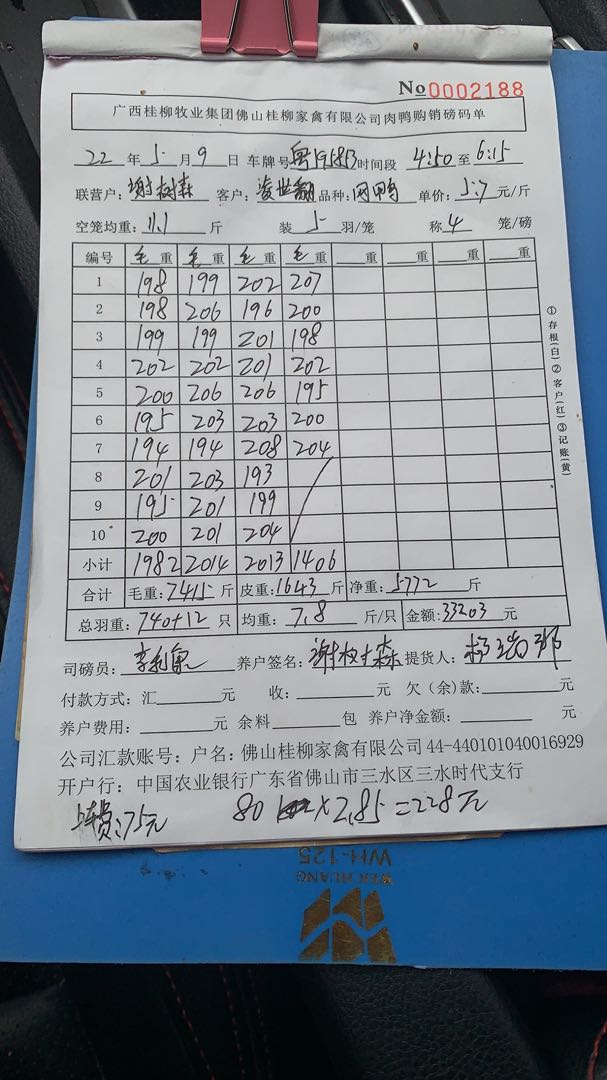 No 0002188
广西桂柳牧业集团佛山桂柳家禽有限公司肉鸭购销磅码单
22 年 5 月 9 日 车牌号 时间段 4:50 至 6:15
联营户: 谢树森 客户: 品种: 肉鸭 单价: 5.7 元/斤
空笼均重: 11.1 斤 装 5 羽/笼 称 4 笼/磅
编号 毛重 毛重 毛重 毛重 重 重 重 重
1 198 199 202 207
2 198 206 196 200
3 199 199 201 198
4 202 202 201 202
5 200 206 206 195
6 195 203 203 200
7 194 194 208 204
8 201 203 193
9 195 201 199
10 200 201 204
小计 1982 2014 2013 1406
合计 毛重: 7415 斤 皮重: 1643 斤 净重: 5772 斤
总羽重: 740+12 只 均重: 7.8 斤/只 金额: 33203 元
司磅员: 养户签名: 谢树森 提货人:
付款方式: 汇 元 收: 元 欠(余)款: 元
养户费用: 元 余料 包 养户净金额: 元
公司汇款账号: 户名: 佛山桂柳家禽有限公司 44-440101040016929
开户行: 中国农业银行广东省佛山市三水区三水时代支行
75元 80 ×2.85=228元
①存根(白)②客户(红)③记账(黄)
WH-125
WEICHUANG